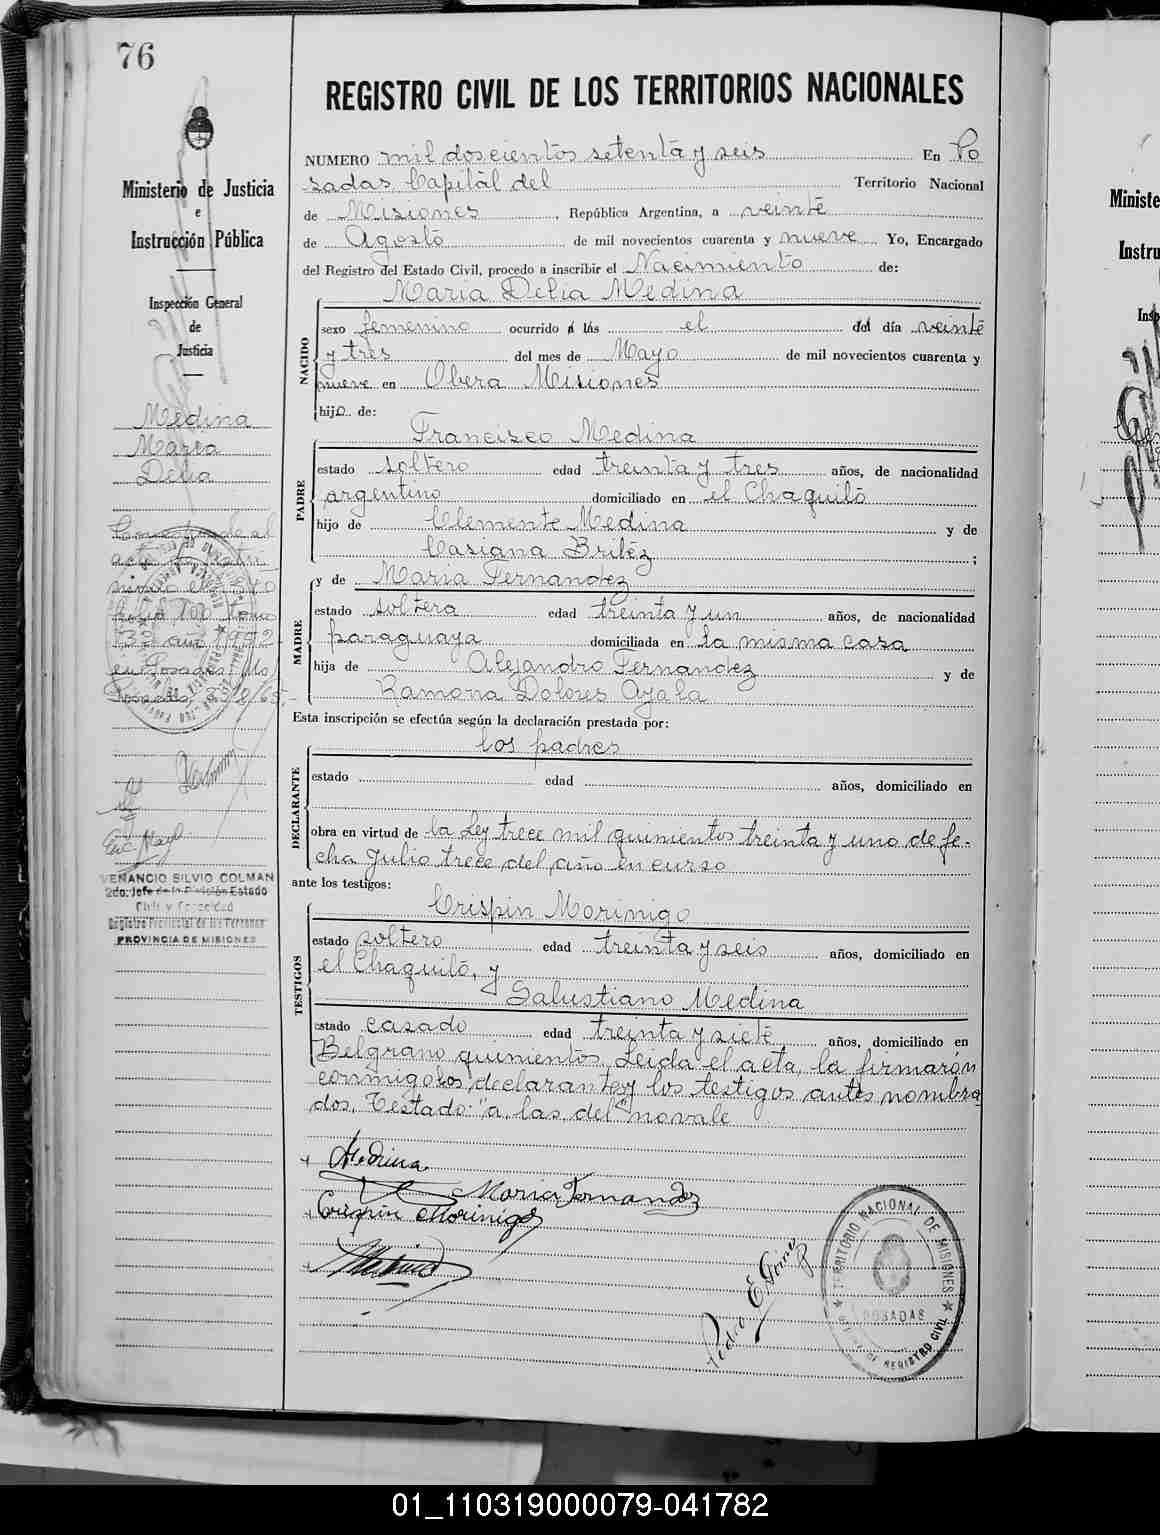 76
Ministerio de Justicia
e
Instrucción Pública
Inspección General
de
Justicia
Medina
Maria
Delia
REGISTRO CIVIL DE LOS TERRITORIOS NACIONALES
NUMERO mil doscientos setenta y seis En Po
sadas, Capital del Territorio Nacional
de Misiones, República Argentina, a veinte
de Agosto de mil novecientos cuarenta y nueve Yo, Encargado
del Registro del Estado Civil, procedo a inscribir el Nacimiento de:
Maria Delia Medina
NACIDO
sexo femenino ocurrido a las el del día veinte
y tres del mes de Mayo de mil novecientos cuarenta y
nueve en Obera Misiones
hijo de:
Francisco Medina
PADRE
estado soltero edad treinta y tres años, de nacionalidad
argentino domiciliado en el Chaquito
hijo de Clemente Medina y de
Casiana Britez ;
y de Maria Fernandez
MADRE
estado soltera edad treinta y un años, de nacionalidad
paraguaya domiciliada en la misma casa
hija de Alejandro Fernandez y de
Ramona Dolores Ayala
Esta inscripción se efectúa según la declaración prestada por:
los padres
DECLARANTE
estado edad años, domiciliado en
obra en virtud de la Ley trece mil quinientos treinta y uno de fe-
cha Julio trece del año en curso
ante los testigos:
Crispin Morinigo
TESTIGOS
estado soltero edad treinta y seis años, domiciliado en
el Chaquito, y
Salustiano Medina
estado casado edad treinta y siete años, domiciliado en
Belgrano quinientos. Leida el acta, la firmarón
conmigo los declarantes y los testigos antes nombra
dos. Testado: "a, las, del" no vale
Medina
Maria Fernandez
Crispin Morinigo
Medina
Pedro E. Gomez
TERRITORIO NACIONAL DE MISIONES
POSADAS
REGISTRO CIVIL
VENANCIO SILVIO COLMAN
2do. Jefe de la División Estado
Civil y Capacidad
Registro Provincial de las Personas
PROVINCIA DE MISIONES
Ministe
Instru
Insp
01_110319000079-041782